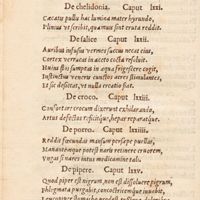 De chelidonia. Caput lxxi.
Cæcatis pullis hac lumina mater hyrundo,
Plinius ut scribit, quamuis sint eruta reddit.
De salice Caput lxxii.
Auribus infusus vermes succus necat eius,
Cortex verrucas in aceto cocta resoluit.
Huius flos sumptus in aqua frigescere cogit,
Instinctus veneris cunctos acres stimulantes,
Et sic desiccat, ut nulla creatio fiat.
De croco. Caput lxxiii.
Confortare crocum dixerunt exhilarando,
Artus defectos reficitque, hepar reparatque.
De porro. Caput lxxiiii.
Reddit fœcundas mansum persæpe puellas,
Manantemque potest naris retinere cruorem,
Vngis si nares intus medicamine tali.
De pipere. Caput lxxv.
Quod piper est nigrum, non est dissoluere pigrum,
Phlegmata purgabit, concoctricemque iuuabit,